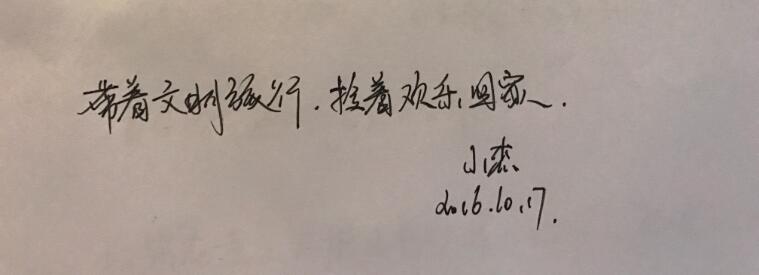 带着文明旅行.拴着欢乐回家.
小杰
2016.10.17.